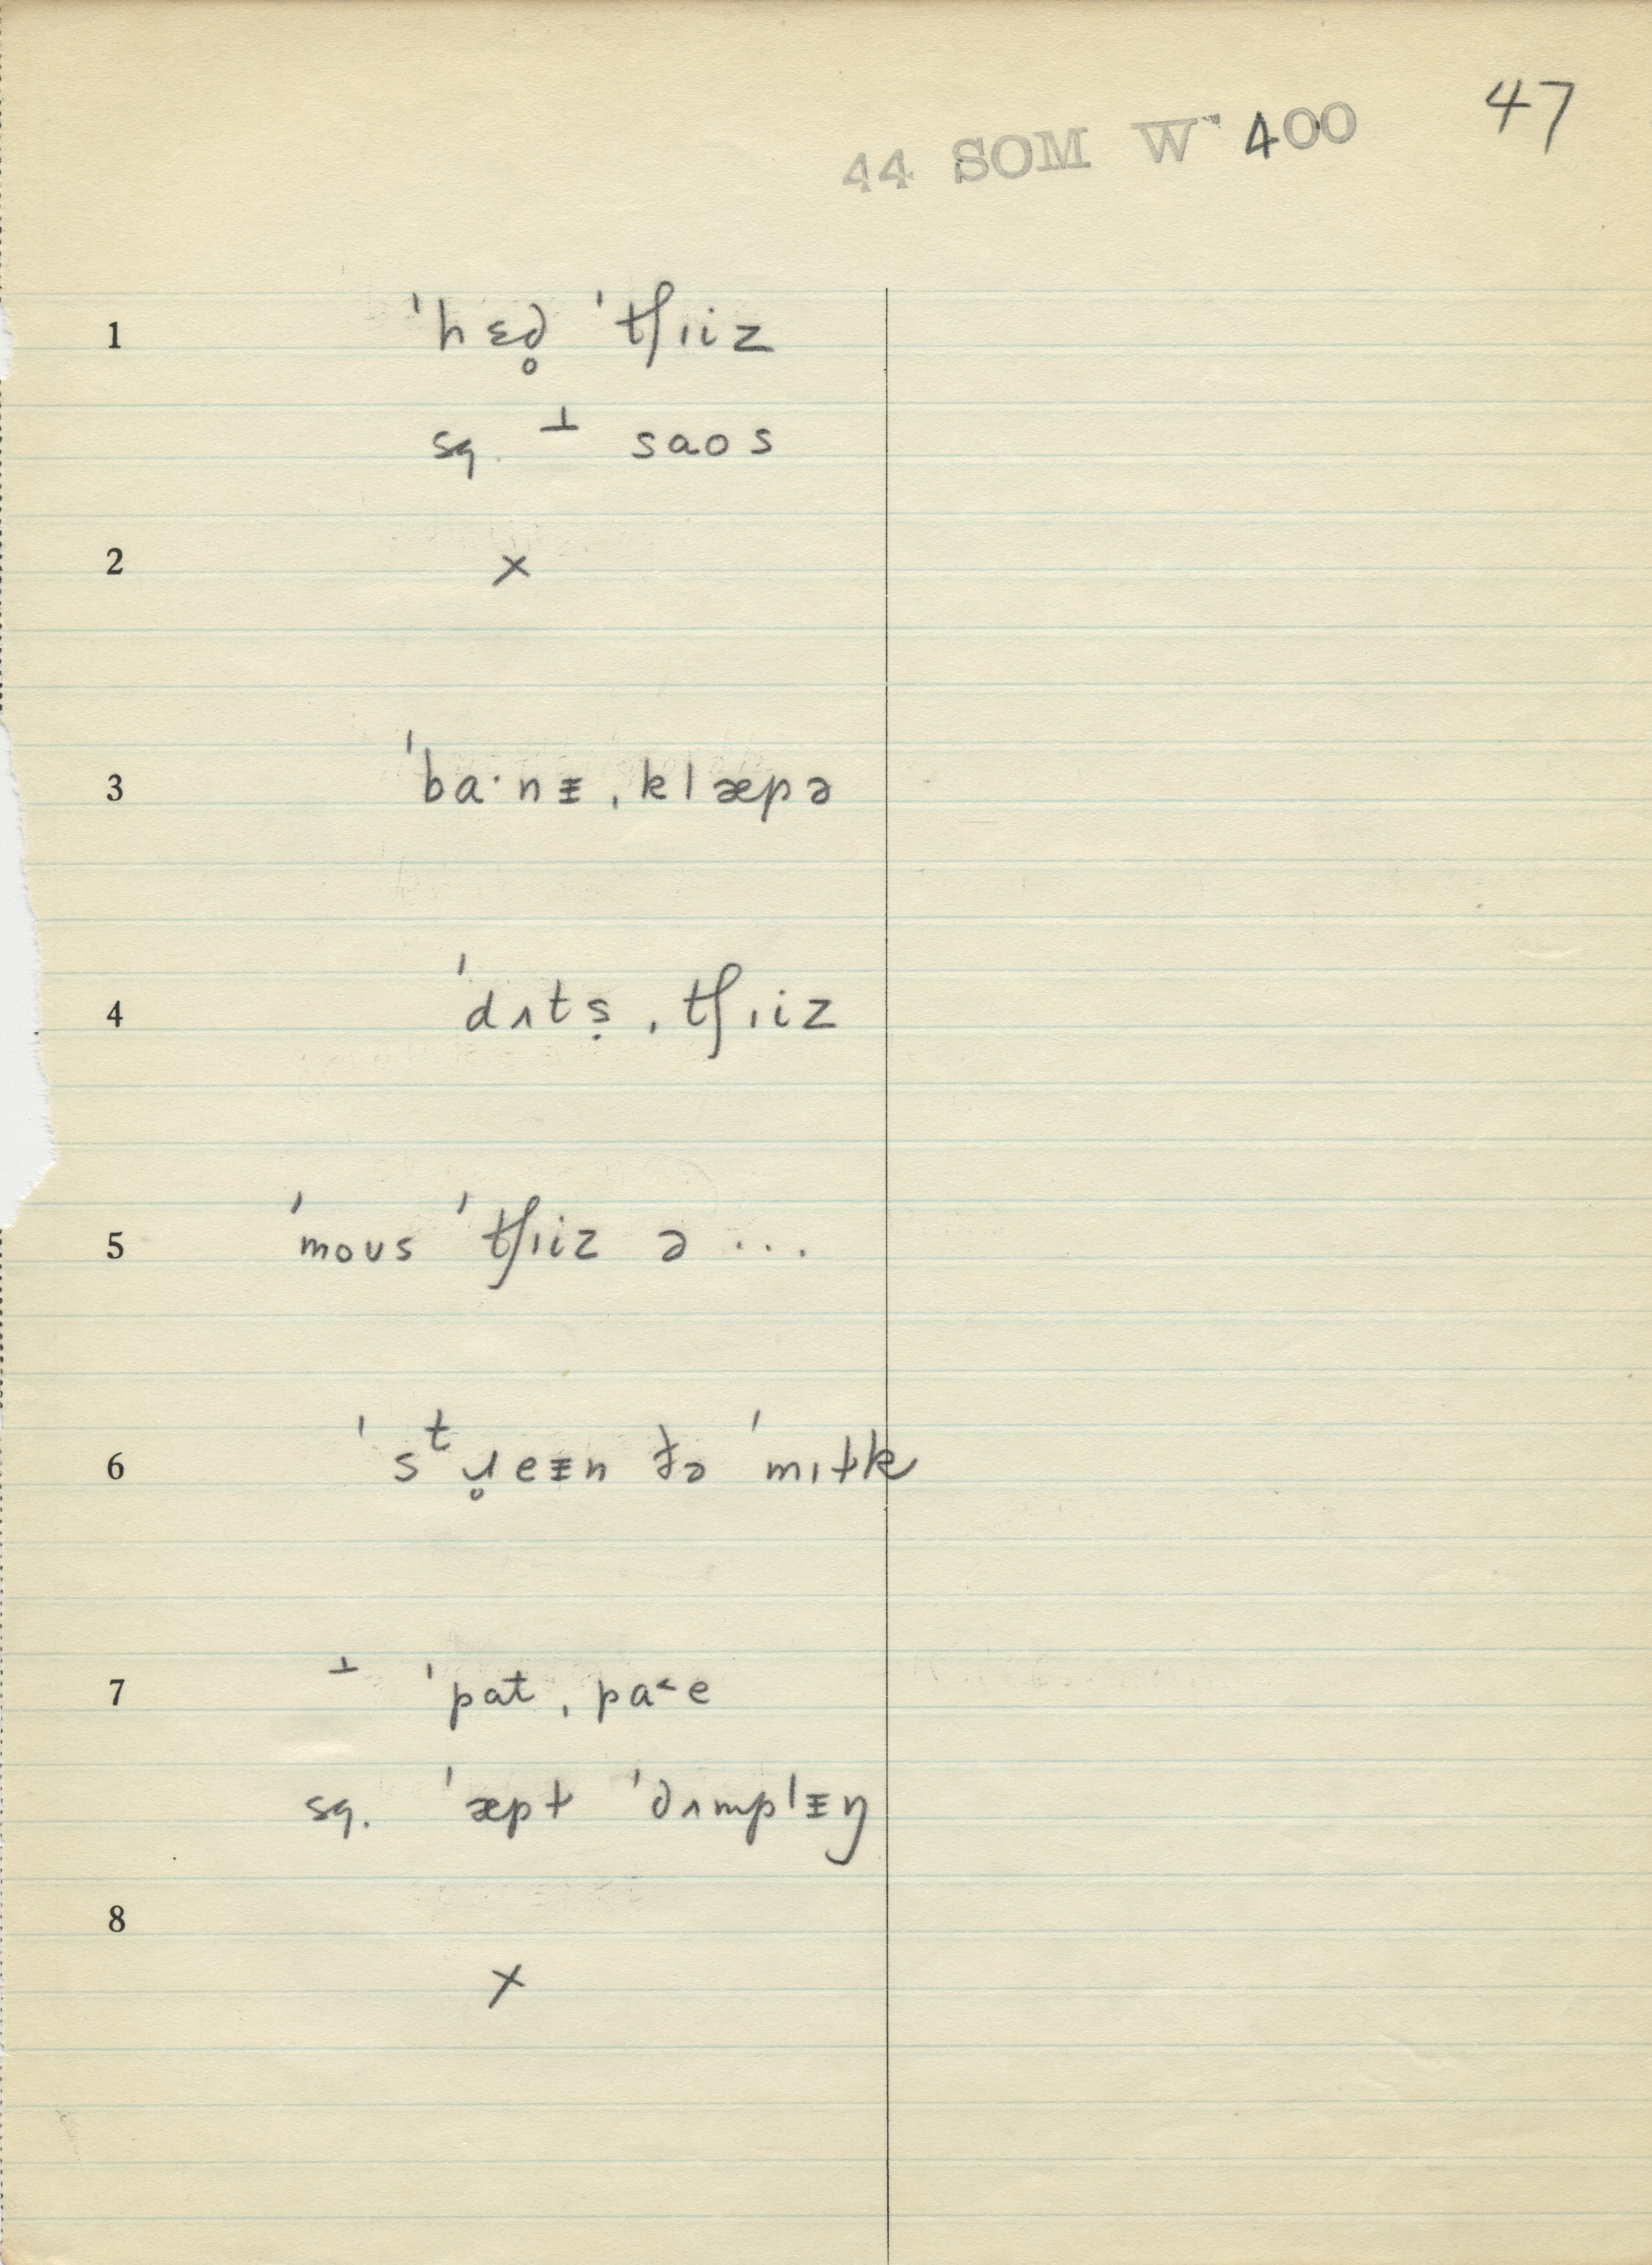 44 SOM W 400 47
1 ˈhɛd̥ ˈtʃɪiz
sq. ⊥ saos
2 ×
3 ˈba·nᵻ ˌklæpə
4 ˈdʌtṣ ˌtʃɪiz
5 ˈmoʊs ˈtʃɪiz ə ...
6 ˈsᵗɹ̥eᵻn ðə ˈmɪɫk
7 ⊥ ˈpat ˌpa˂e
sq. ˈæpɫ ˈdʌmplᵻŋ
8 ×